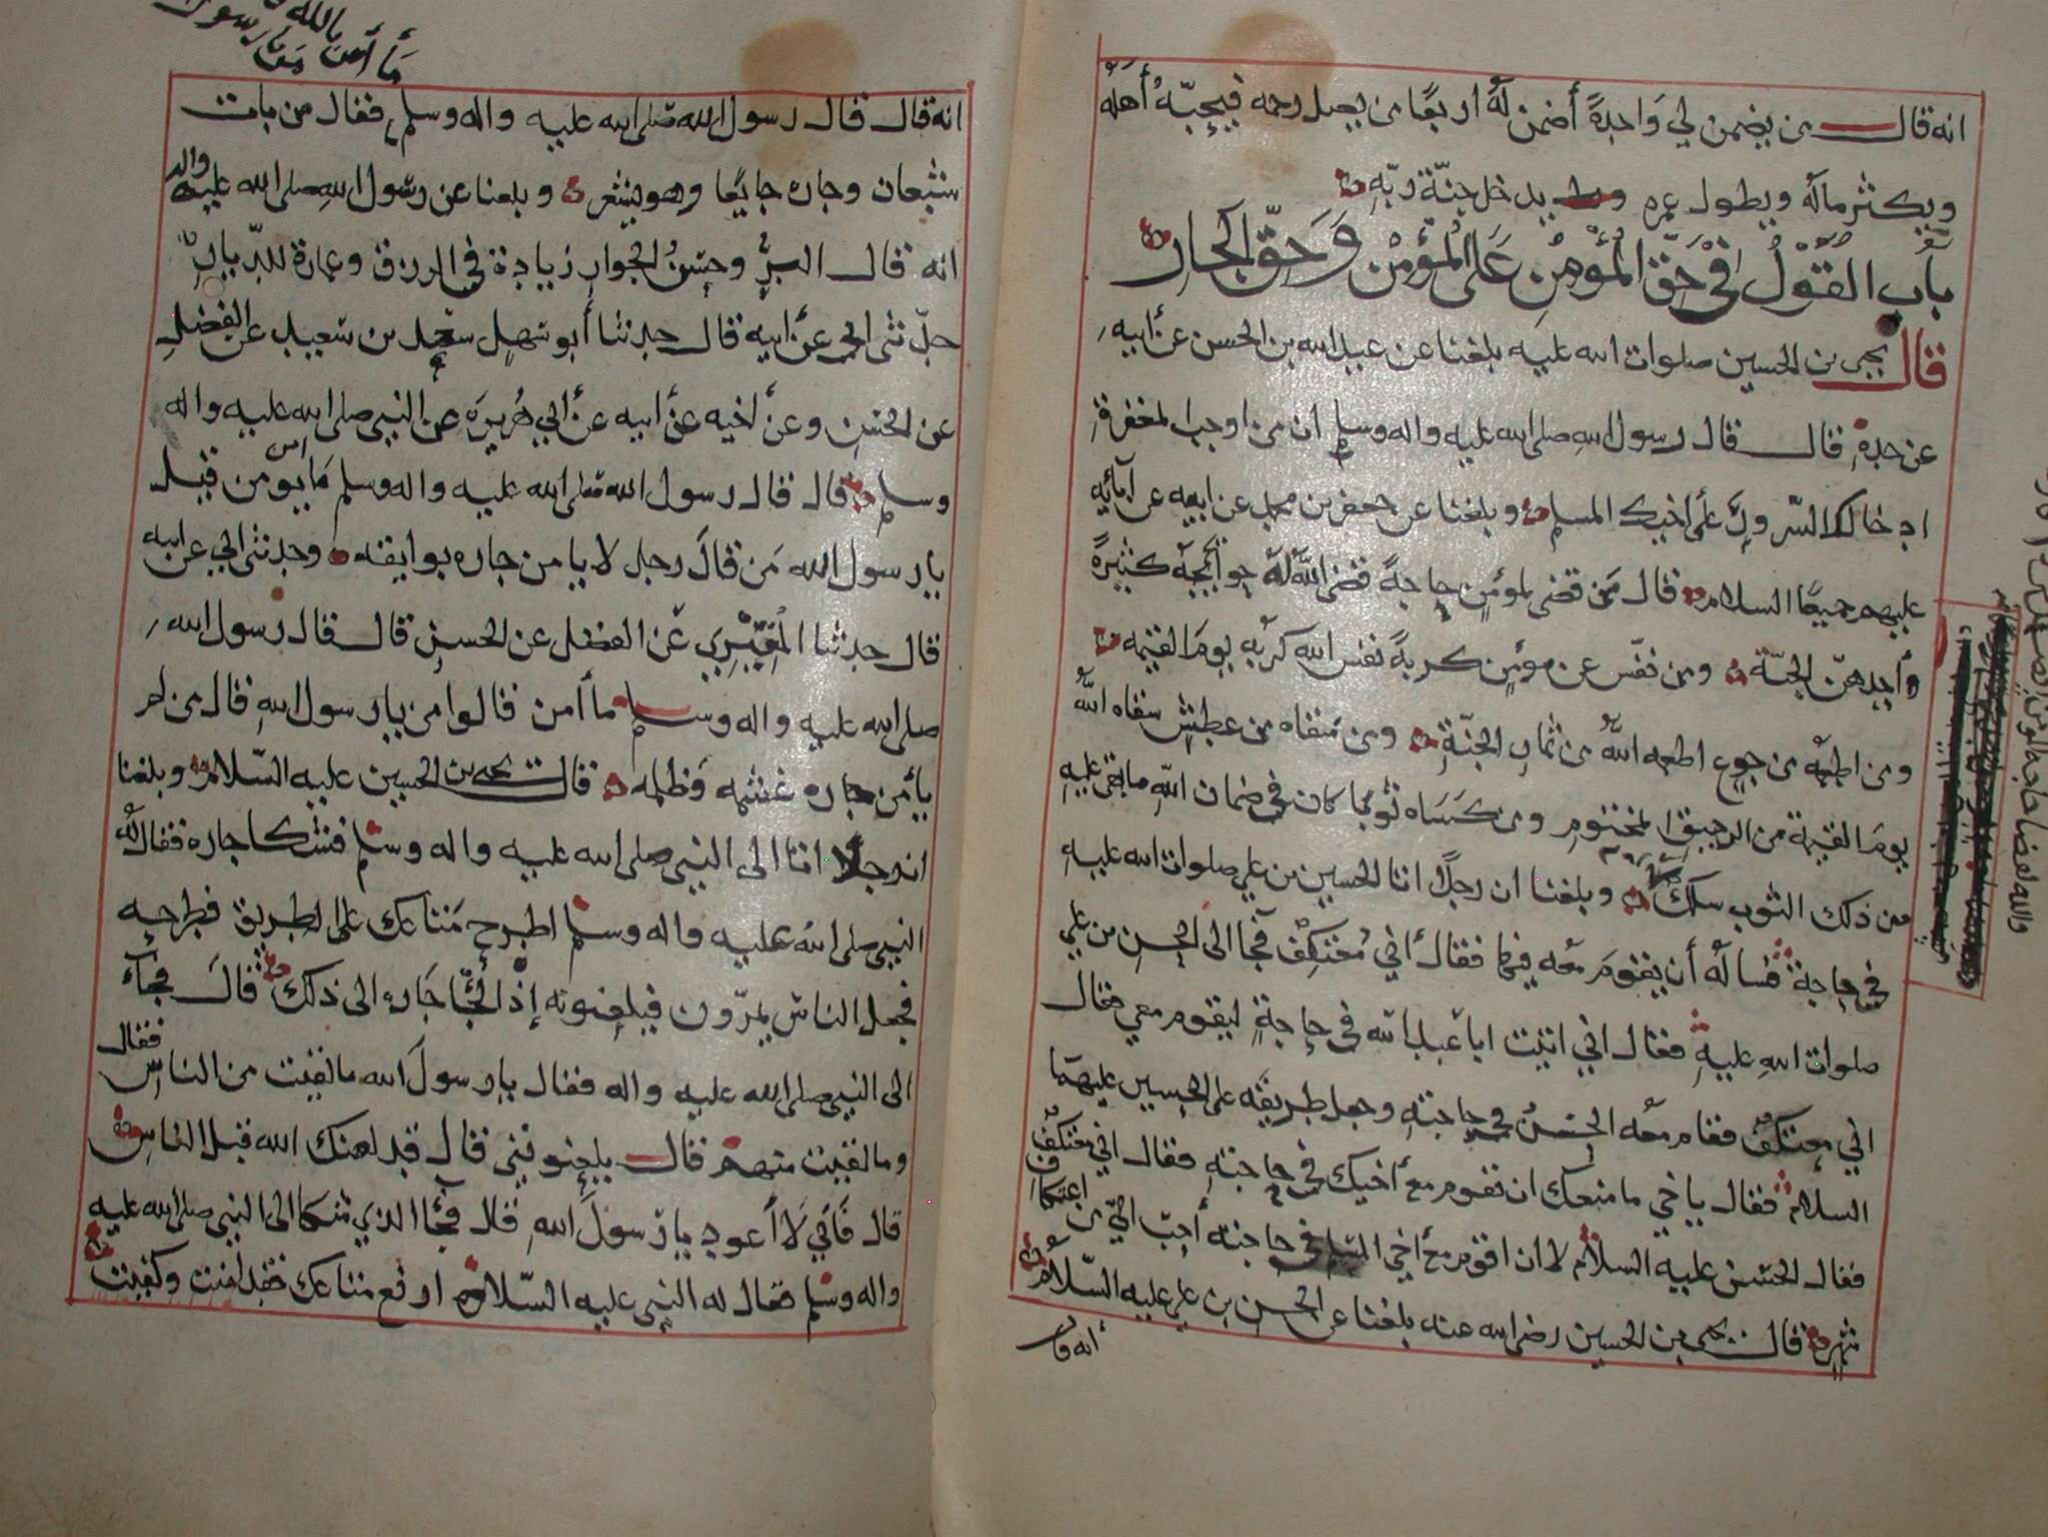 انه قال من يضمن لي واحدةً أضمن له اربعًا من يصل رحمه فيحبّه أهله
ويكثر ماله ويطول عمره ويدخل جنّة ربّه
باب القول في حقّ المؤمن على المؤمن وحقّ الجار
قال يحيى بن الحسين صلوات الله عليه بلغنا عن عبد الله بن الحسن عن أبيه
عن جده قال قال رسول الله صلى الله عليه واله وسلم ان من اوجب المغفرة
ادخالك السّرور على أخيك المسلم وبلغنا عن جعفر بن محمد عن ابيه عن آبائه
عليهم جميعًا السلام قال من قضى لمؤمنٍ حاجةً قضى الله له حوائجه كثيرةً
وأحدهنّ الجنّة ومن نفّس عن مؤمنٍ كربةً نفس الله كربه يوم القيمه
ومن اطعمه من جوعٍ اطعمه الله من ثمار الجنّة ومن سقاه من عطشٍ سقاه الله
يوم القيمة من الرحيق المختوم ومن كساه ثوبًا كان في ضمان الله ما بقي عليه
من ذلك الثوب سلك وبلغنا ان رجلًا اتا الحسين بن علي صلوات الله عليه
في حاجة فسأله أن يقوم معه فيها فقال أني معتكفٌ فجآ الى الحسن بن علي
صلوات الله عليه فقال اني اتيت ابا عبد الله في حاجةٍ ليقوم معي فقال
اني معتكفٌ فقام معه الحسن في حاجته وجعل طريقه على الحسين عليهما
السلام فقال يا خي ما منعك ان تقوم مع أخيك في حاجته فقال اني معتكفٌ
فقال الحسن عليه السلام لان اقوم مع أخي المسلم في حاجته أحبّ اليّ من اعتكاف
شهر قال يحيى بن الحسين رضي الله عنه بلغنا عن الحسن بن علي عليه السّلام
انه قال
انه قال قال رسول الله صلى الله عليه واله وسلم فقال من بات
شبعان وجاره جايعًا وبلغنا عن رسول الله صلى الله عليه واله
انه قال البرّ وحسن الجوار زيادة في الرزق وعمارة للديار
حدّثني ابي عن ابيه قال حدثنا أبو سهل سعيد بن سعيد عن الفضل
عن الحسن وعن أخيه عن ابيه عن أبي هريره عن النبي صلى الله عليه واله
وسلم قال قال رسول الله صلى الله عليه واله وسلم ما يومن قيل
يا رسول الله من قال رجل لا يامن جاره بوايقه وحدثني ابي عن ابيه
قال حدثنا عن الفضل عن الحسن قال قال رسول الله
صلى الله عليه واله وسلم ما أمن قالوا من يا رسول الله قال من لم
يأمن جاره غشمه وظلمه قال يحيى بن الحسين عليه السّلام وبلغنا
ان رجلًا اتا الى النبي صلى الله عليه واله وسلم فشكا جاره فقال له
النبي صلى الله عليه واله وسلم اطرح متاعك على الطريق فطرحه
فجعل الناس يمرّون فيلعنونه إذ ألجا جاره الى ذلك قال فجآء
الى النبي صلى الله عليه واله فقال يا رسول الله ما لقيت من الناس فقال
وما لقيت منهم قال يلعنوني قال قد لعنك الله قبل الناس
قال فاني لا أعود يا رسول الله قال فجآ الذي شكا الى النبي صلى الله عليه
واله وسلم فقال له النبي عليه السّلام ارفع متاعك فقد امنت وكفيت